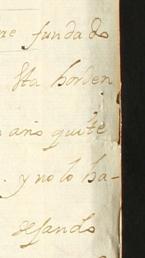 ae fundado
sta horden
n ario quite
y no lo ha-
desando